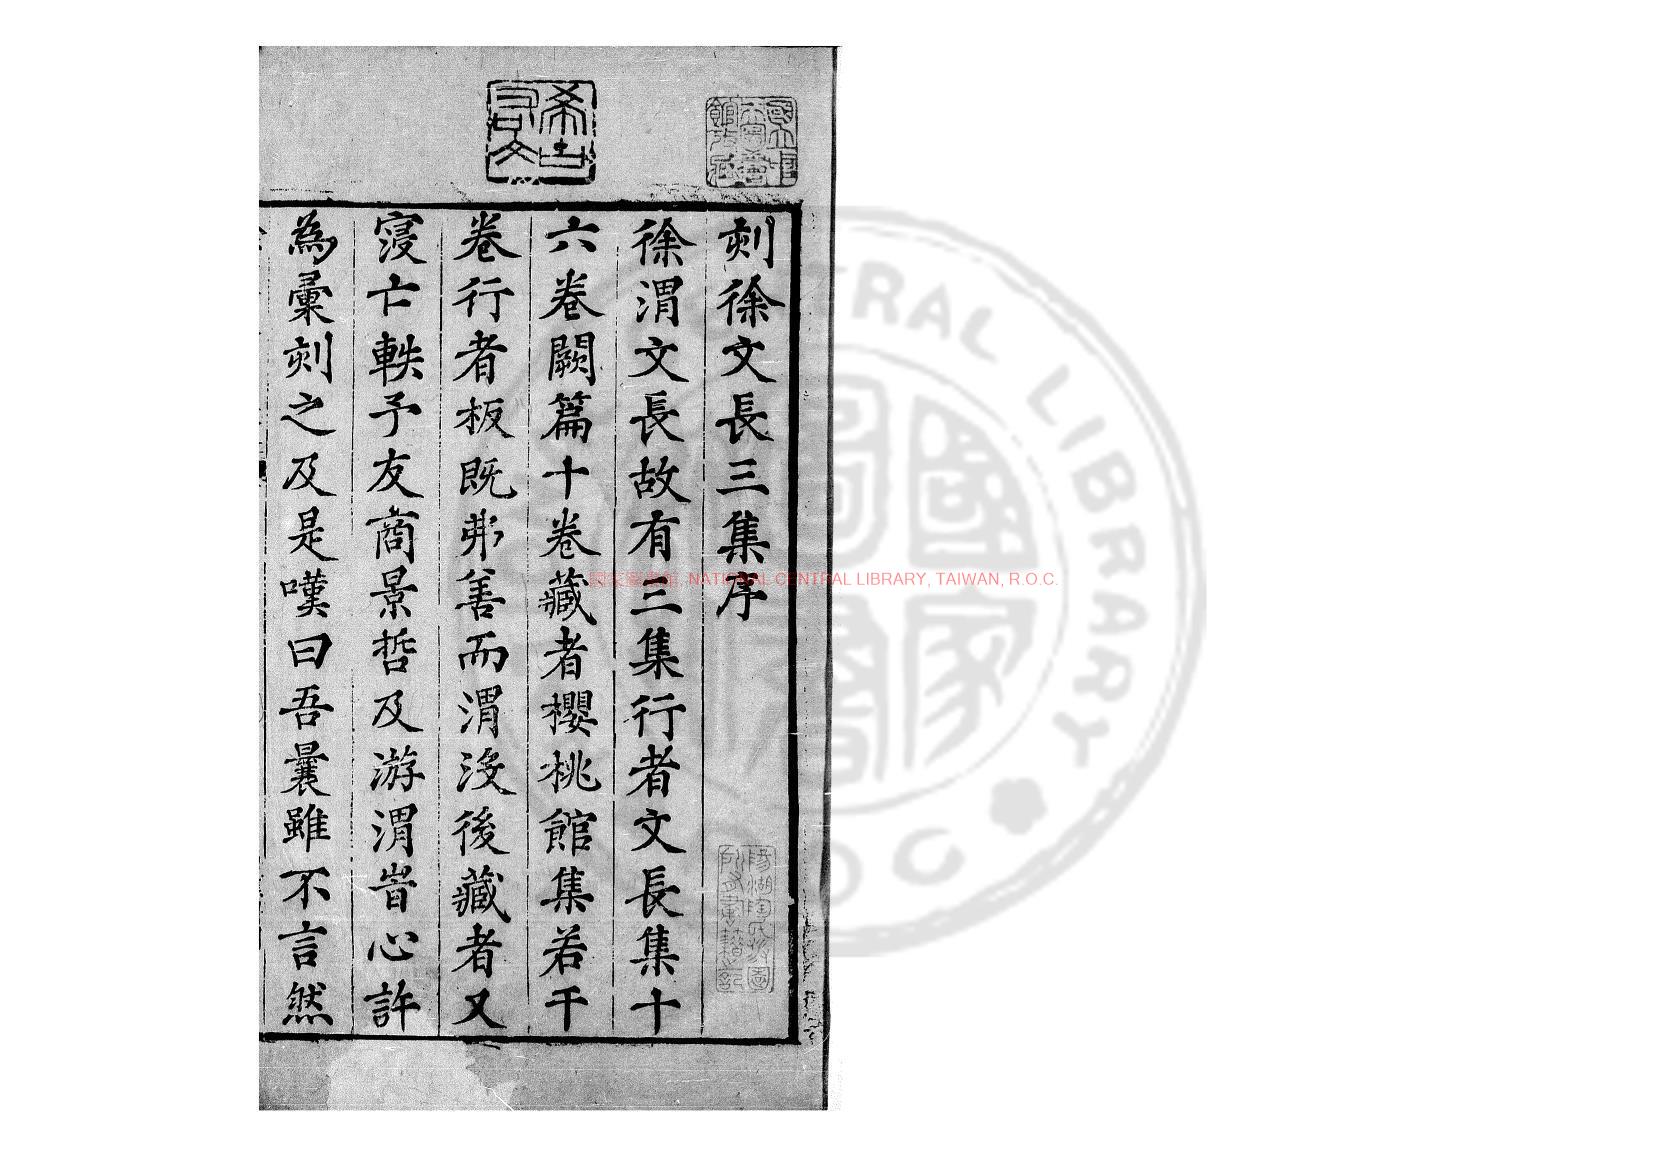 希古右文
國立中央圖書館收藏
刻徐文長三集序
徐渭文長故有三集行者文長集十
六卷闕篇十卷藏者櫻桃館集若干
卷行者板既弗善而渭沒後藏者又
寖亡軼予友商景哲及游渭旹心許
為彙刻之及是嘆曰吾曩雖不言然
陽湖陶氏涉園所有書籍之記
國家圖書館, NATIONAL CENTRAL LIBRARY, TAIWAN, R.O.C.